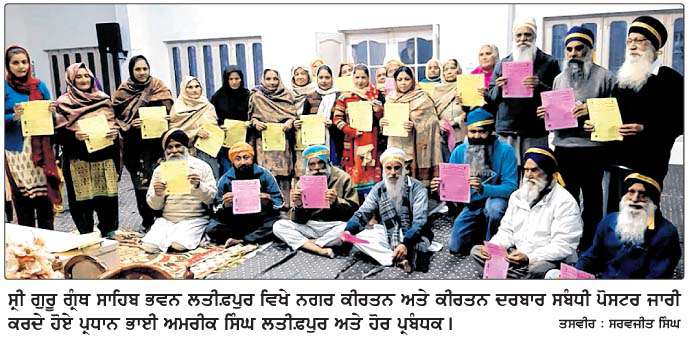 ਸ੍ਰੀ ਗੁਰੂ ਗ੍ਰੰਥ ਸਾਹਿਬ ਭਵਨ ਲਤੀਫ਼ਪੁਰ ਵਿਖੇ ਨਗਰ ਕੀਰਤਨ ਅਤੇ ਕੀਰਤਨ ਦਰਬਾਰ ਸਬੰਧੀ ਪੋਸਟਰ ਜਾਰੀ
ਕਰਦੇ ਹੋਏ ਪ੍ਰਧਾਨ ਭਾਈ ਅਮਰੀਕ ਸਿੰਘ ਲਤੀਫ਼ਪੁਰ ਅਤੇ ਹੋਰ ਪ੍ਰਬੰਧਕ। ਤਸਵੀਰ : ਸਰਵਜੀਤ ਸਿੰਘ